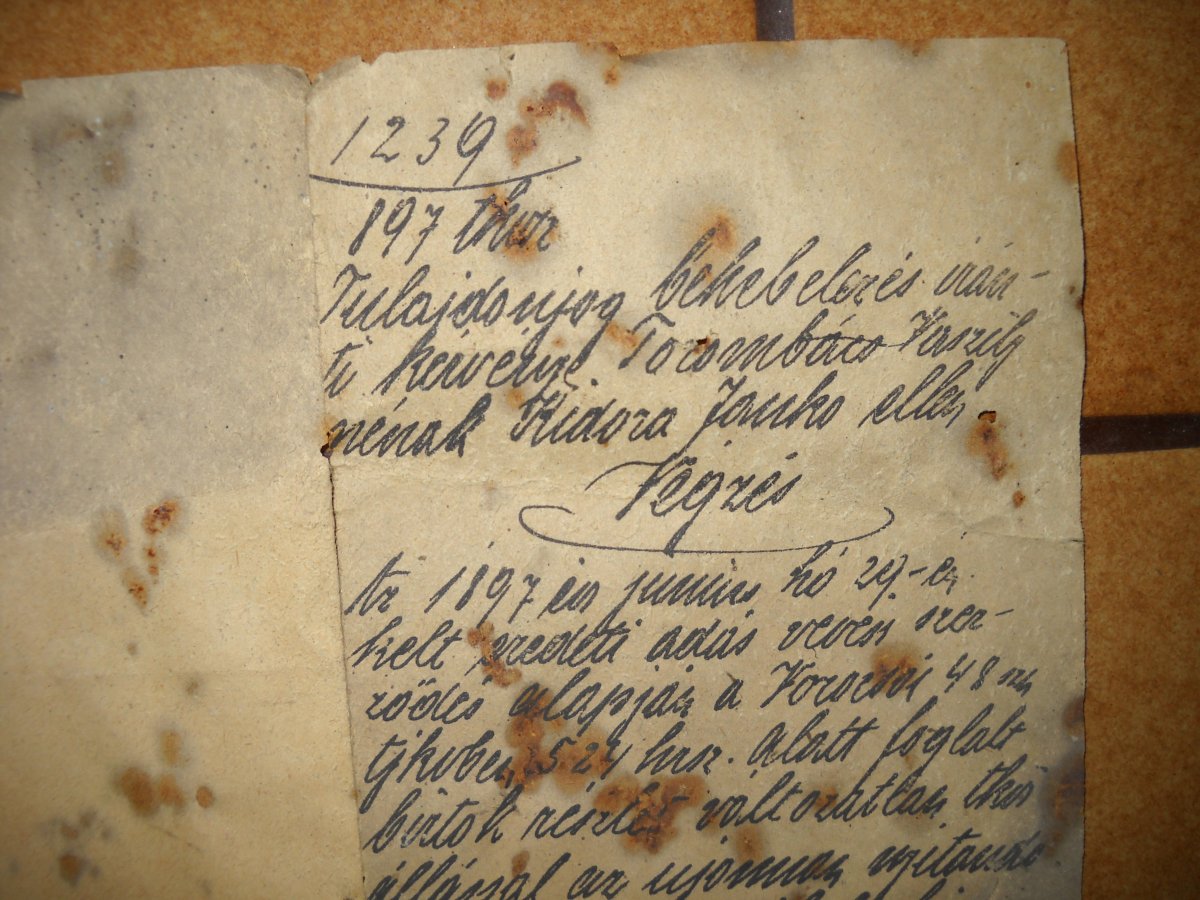 1239
897 tksz
Tulajdonjog bekebelezés irán-
ti kérvénye Torombács Vaszily
nénak Kidora Janko ellen
Végzés
Az 1897 évi junius hó 29-én
kelt eredeti adás vevési szer-
ződés alapján a 48 szn
tjkvben 2524 hrsz. alatt foglalt
birtok részlet változatlan tkvi
állással az ujonnan nyitandó